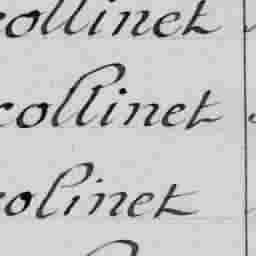 collinet
collinet
colinet